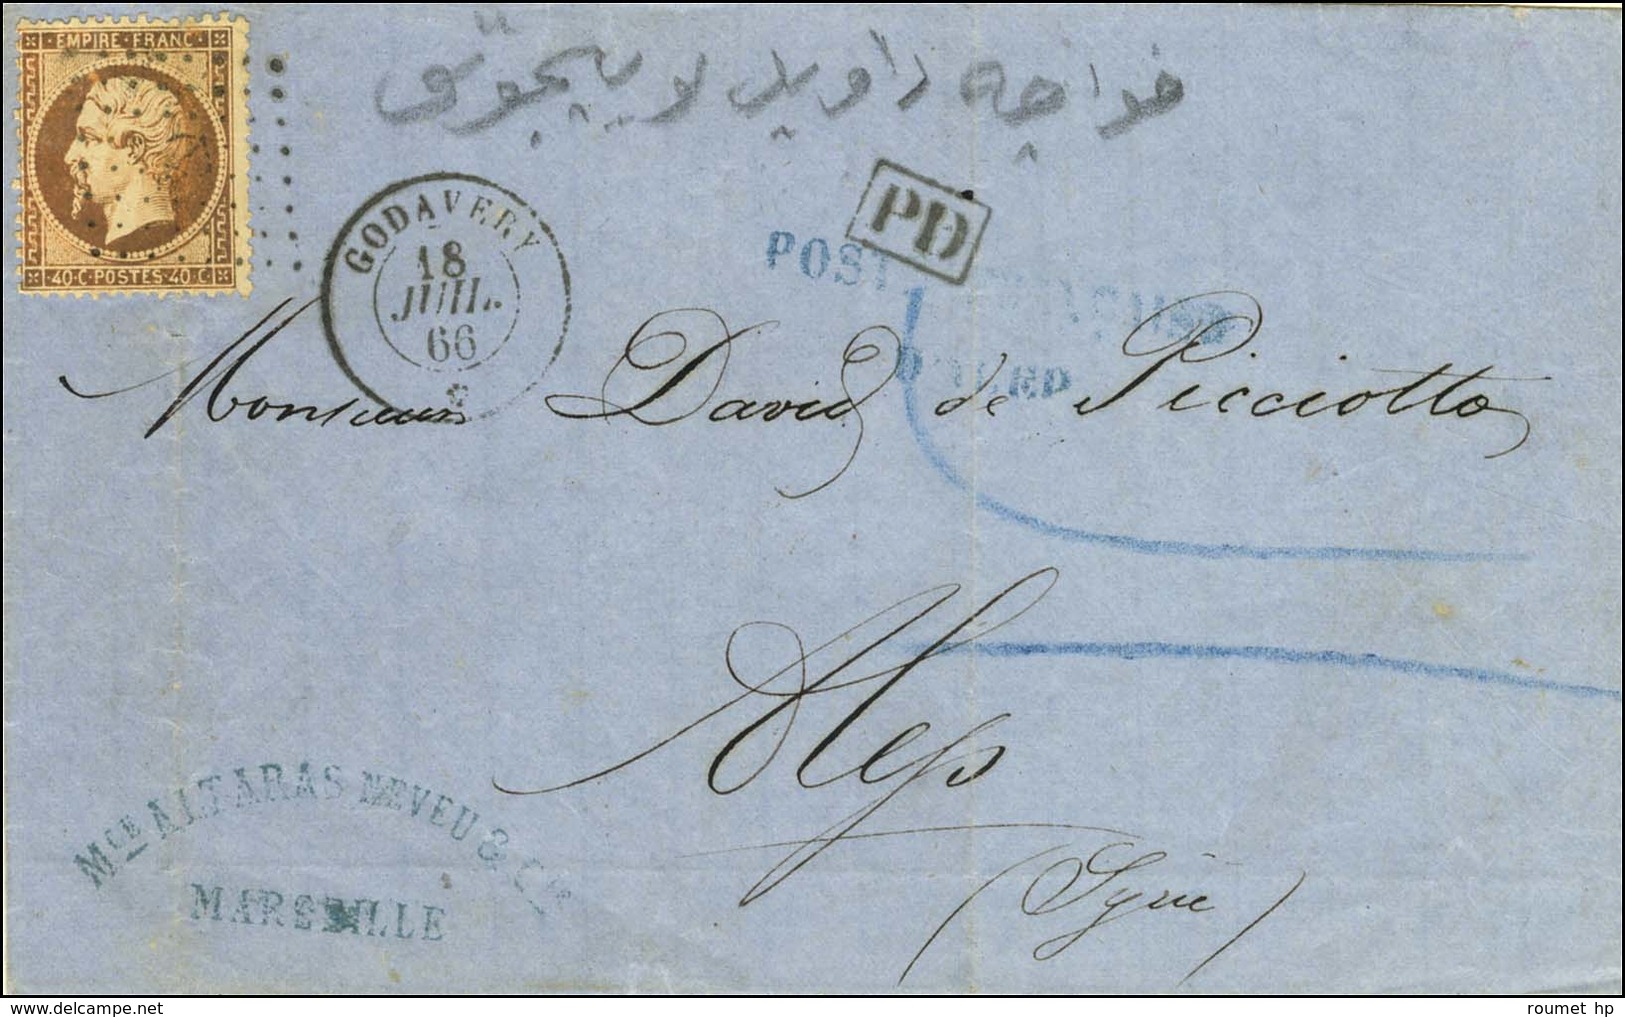 EMPIRE · FRANC ·
40·C·POSTES·40·C
خواجه داويد
PD
GODAVERY
18
JUIL.
66
POST
Monsieur David de Picciotto
Alep
(Syrie)
Mce ALTARAS NEVEU & Cie
MARSEILLE
roumet hp